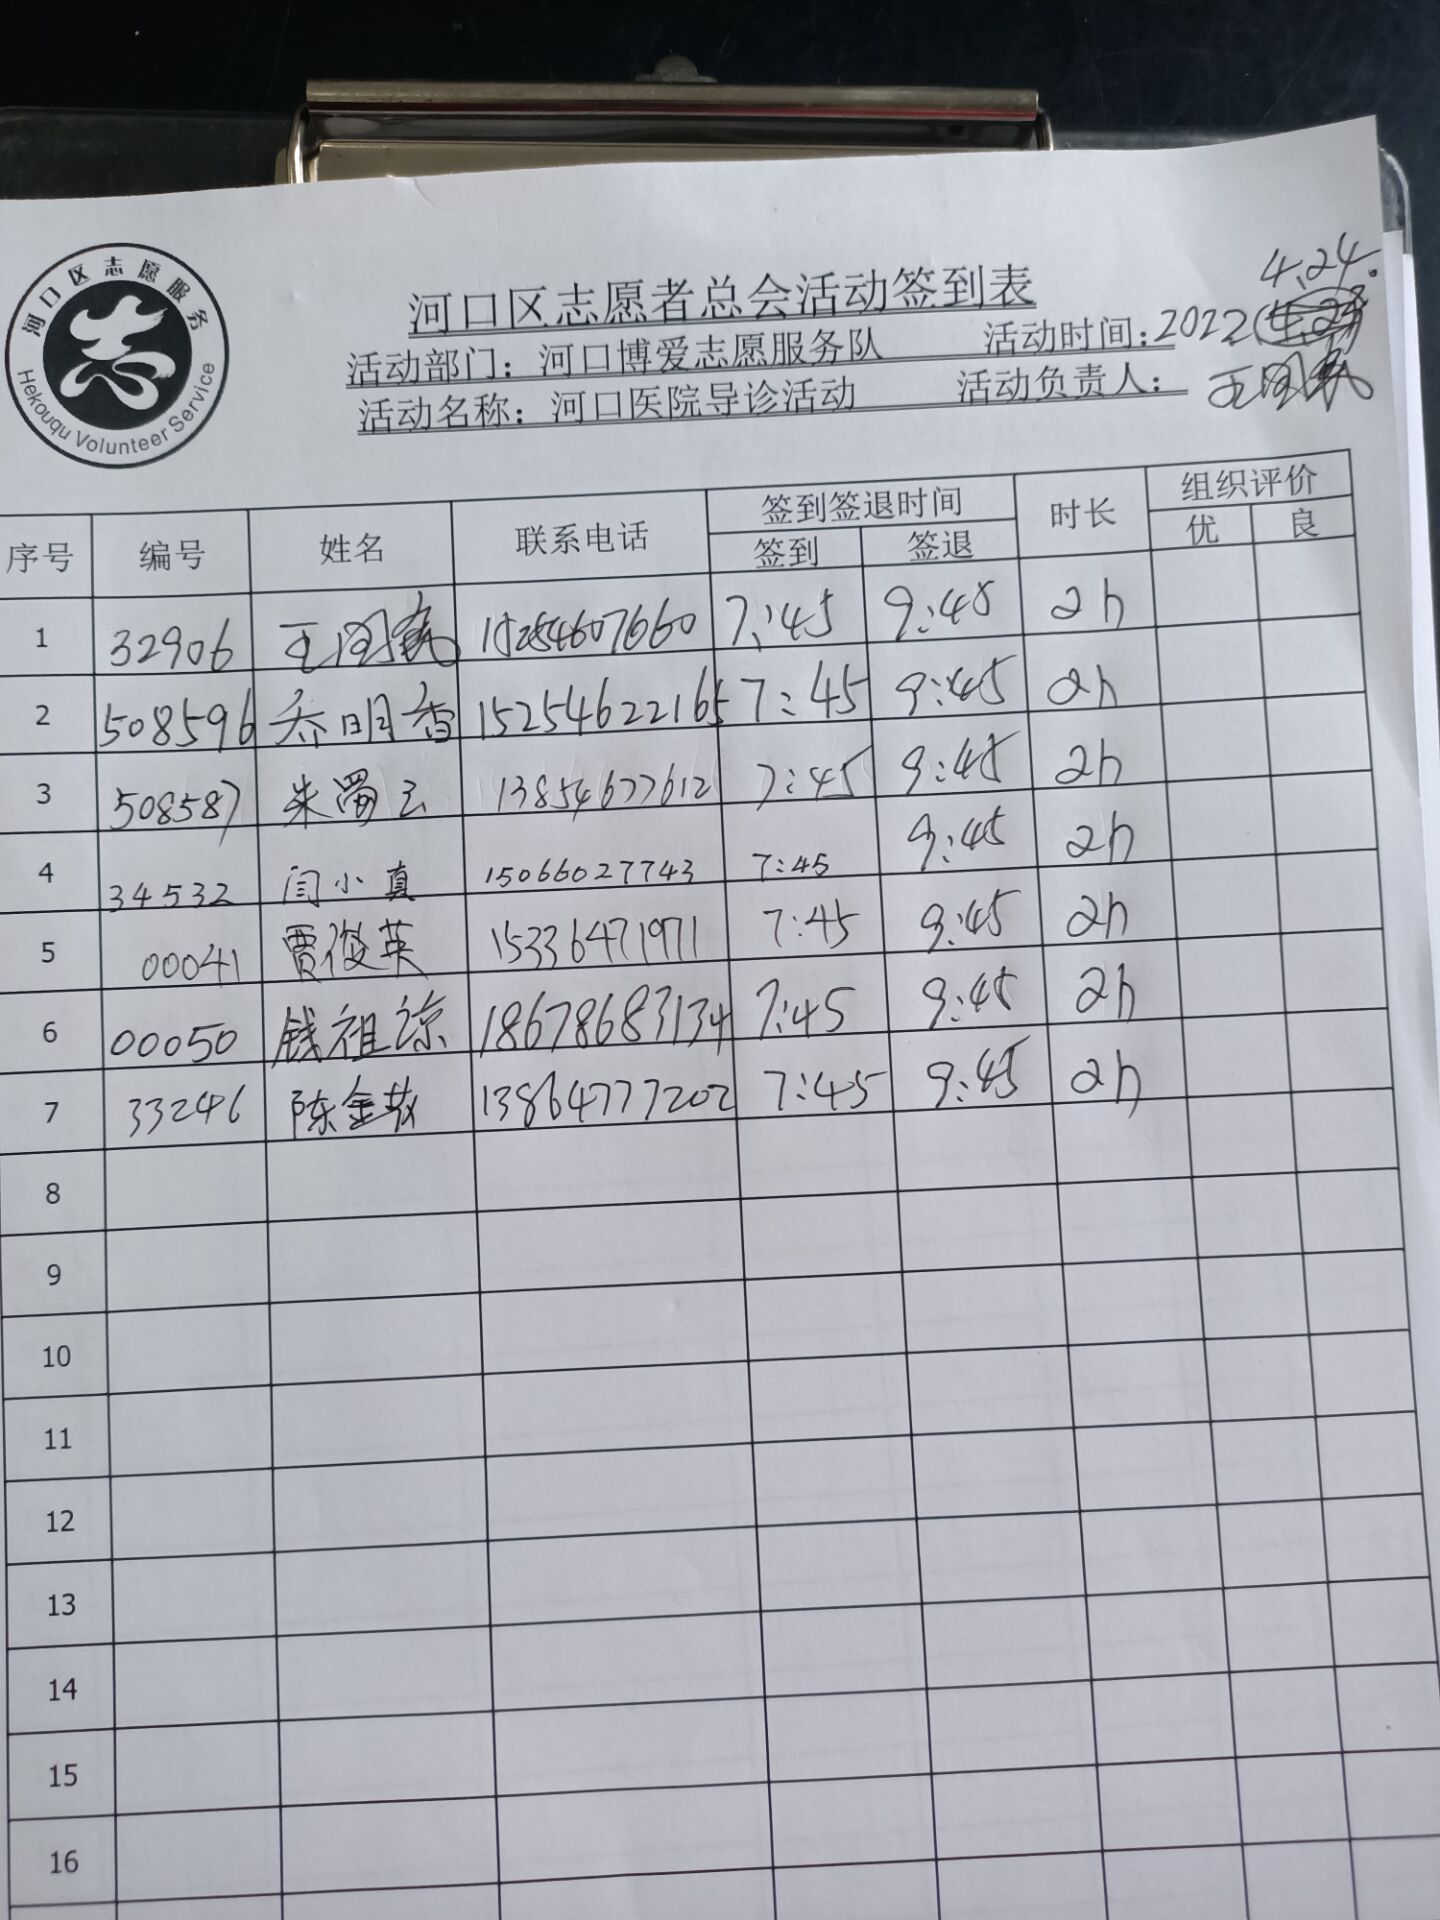 河口区志愿服务
志
Hekouqu Volunteer Service
4.24.
河口区志愿者总会活动签到表
活动部门：河口博爱志愿服务队 活动时间：2022
活动名称：河口医院导诊活动 活动负责人：王
序号 编号 姓名 联系电话 签到签退时间 时长 组织评价
签到 签退 优 良
1 32906 王 15254607660 7:45 9:45 2h
2 508596 乔明香 15254622165 7:45 9:45 2h
3 508587 朱蜀云 13854677612 7:45 9:45 2h
4 34532 闫小真 15066027743 7:45 9:45 2h
5 00041 贾俊英 15336471971 7:45 9:45 2h
6 00050 钱祖谅 18678683134 7:45 9:45 2h
7 33246 陈金 13864777202 7:45 9:45 2h
8
9
10
11
12
13
14
15
16